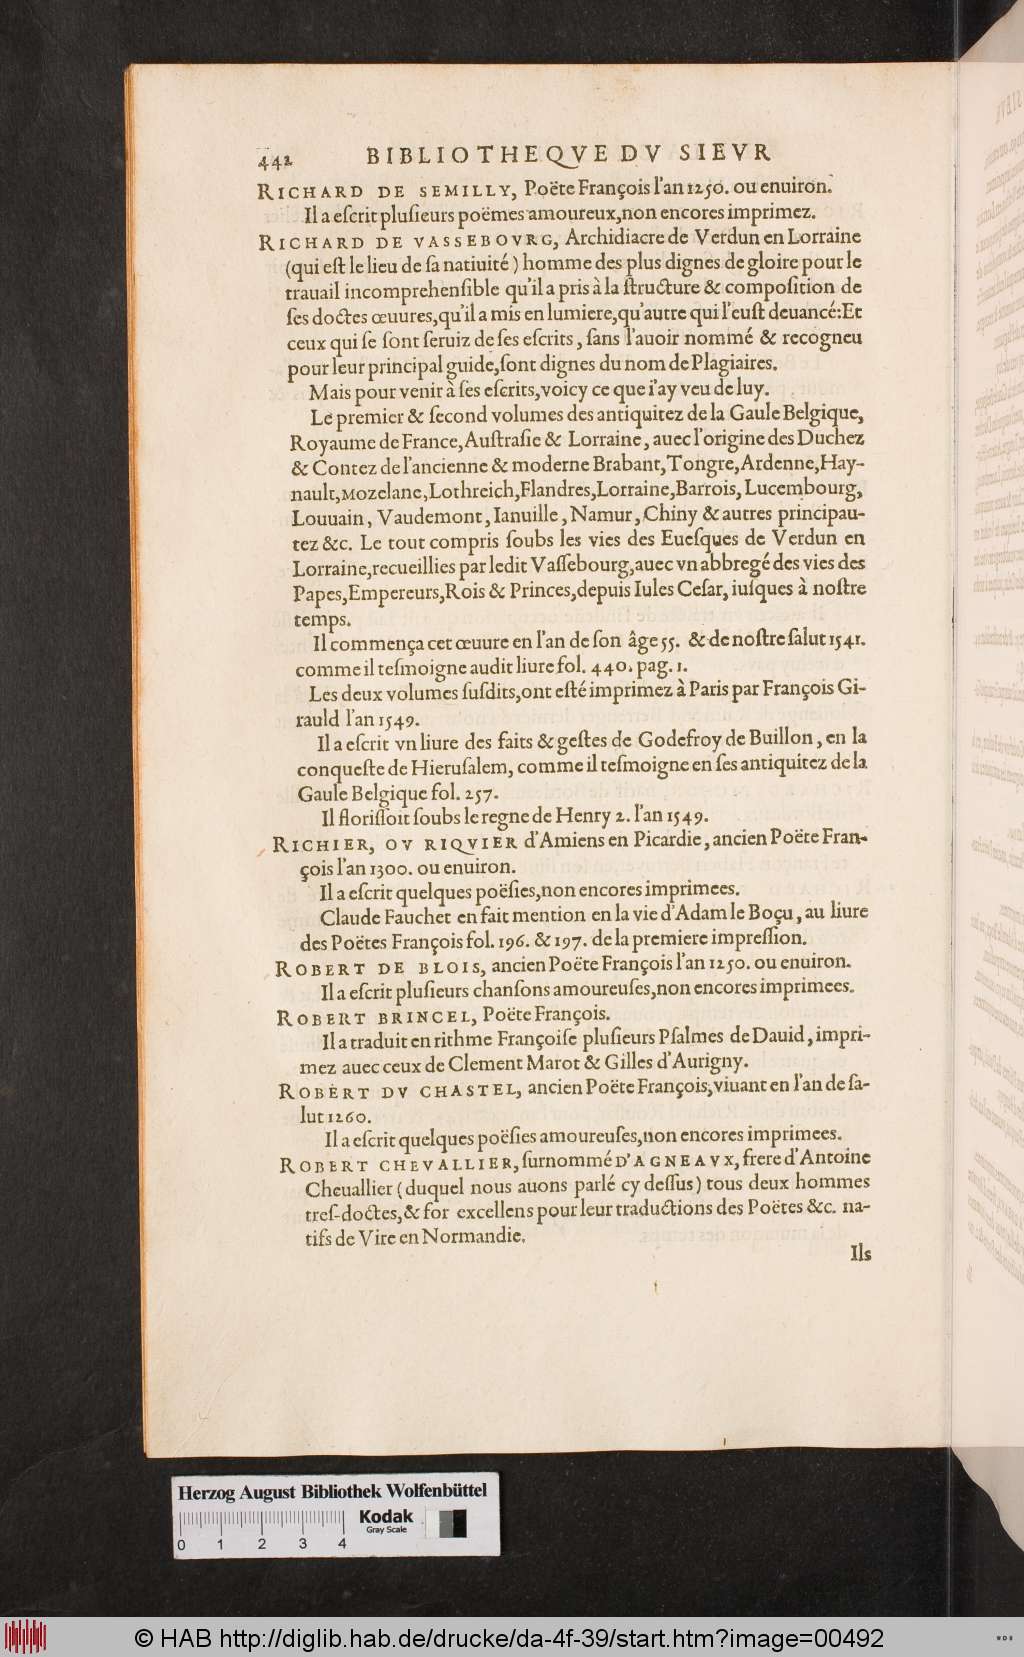 442 BIBLIOTHEQVE DV SIEVR
RICHARD DE SEMILLY, Poëte François l'an 1250. ou enuiron.
Il a eſcrit pluſieurs poëmes amoureux, non encores imprimez.
RICHARD DE VASSEBOVRG, Archidiacre de Verdun en Lorraine
(qui eſt le lieu de ſa natiuité) homme des plus dignes de gloire pour le
trauail incomprehenſible qu'il a pris à la ſtructure & compoſition de
ſes doctes œuures, qu'il a mis en lumiere, qu'autre qui l'euſt deuancé: Et
ceux qui ſe ſont ſeruiz de ſes eſcrits, ſans l'auoir nommé & recogneu
pour leur principal guide, ſont dignes du nom de Plagiaires.
Mais pour venir à ſes eſcrits, voicy ce que i'ay veu de luy.
Le premier & ſecond volumes des antiquitez de la Gaule Belgique,
Royaume de France, Auſtraſie & Lorraine, auec l'origine des Duchez
& Contez de l'ancienne & moderne Brabant, Tongre, Ardenne, Hay-
nault, Mozelane, Lothreich, Flandres, Lorraine, Barrois, Lucembourg,
Louuain, Vaudemont, Ianuille, Namur, Chiny & autres principau-
tez &c. Le tout compris ſoubs les vies des Eueſques de Verdun en
Lorraine, recueillies par ledit Vaſſebourg, auec vn abbregé des vies des
Papes, Empereurs, Rois & Princes, depuis Iules Ceſar, iuſques à noſtre
temps.
Il commença cet œuure en l'an de ſon âge 55. & de noſtre ſalut 1541.
comme il teſmoigne audit liure fol. 440. pag. 1.
Les deux volumes ſuſdits, ont eſté imprimez à Paris par François Gi-
rauld l'an 1549.
Il a eſcrit vn liure des faits & geſtes de Godefroy de Buillon, en la
conqueſte de Hieruſalem, comme il teſmoigne en ſes antiquitez de la
Gaule Belgique fol. 257.
Il floriſſoit ſoubs le regne de Henry 2. l'an 1549.
RICHIER, OV RIQVIER d'Amiens en Picardie, ancien Poëte Fran-
çois l'an 1300. ou enuiron.
Il a eſcrit quelques poëſies, non encores imprimees.
Claude Fauchet en fait mention en la vie d'Adam le Boçu, au liure
des Poëtes François fol. 196. & 197. de la premiere impreſſion.
ROBERT DE BLOIS, ancien Poëte François l'an 1250. ou enuiron.
Il a eſcrit pluſieurs chanſons amoureuſes, non encores imprimees.
ROBERT BRINCEL, Poëte François.
Il a traduit en rithme Françoiſe pluſieurs Pſalmes de Dauid, impri-
mez auec ceux de Clement Marot & Gilles d'Aurigny.
ROBERT DV CHASTEL, ancien Poëte François, viuant en l'an de ſa-
lut 1260.
Il a eſcrit quelques poëſies amoureuſes, non encores imprimees.
ROBERT CHEVALLIER, ſurnommé D'AGNEAVX, frere d'Antoine
Cheuallier (duquel nous auons parlé cy deſſus) tous deux hommes
treſ-doctes, & for excellens pour leur traductions des Poëtes &c. na-
tifs de Vire en Normandie.
Ils
Herzog August Bibliothek Wolfenbüttel
Kodak
Gray Scale
0 1 2 3 4
© HAB http://diglib.hab.de/drucke/da-4f-39/start.htm?image=00492